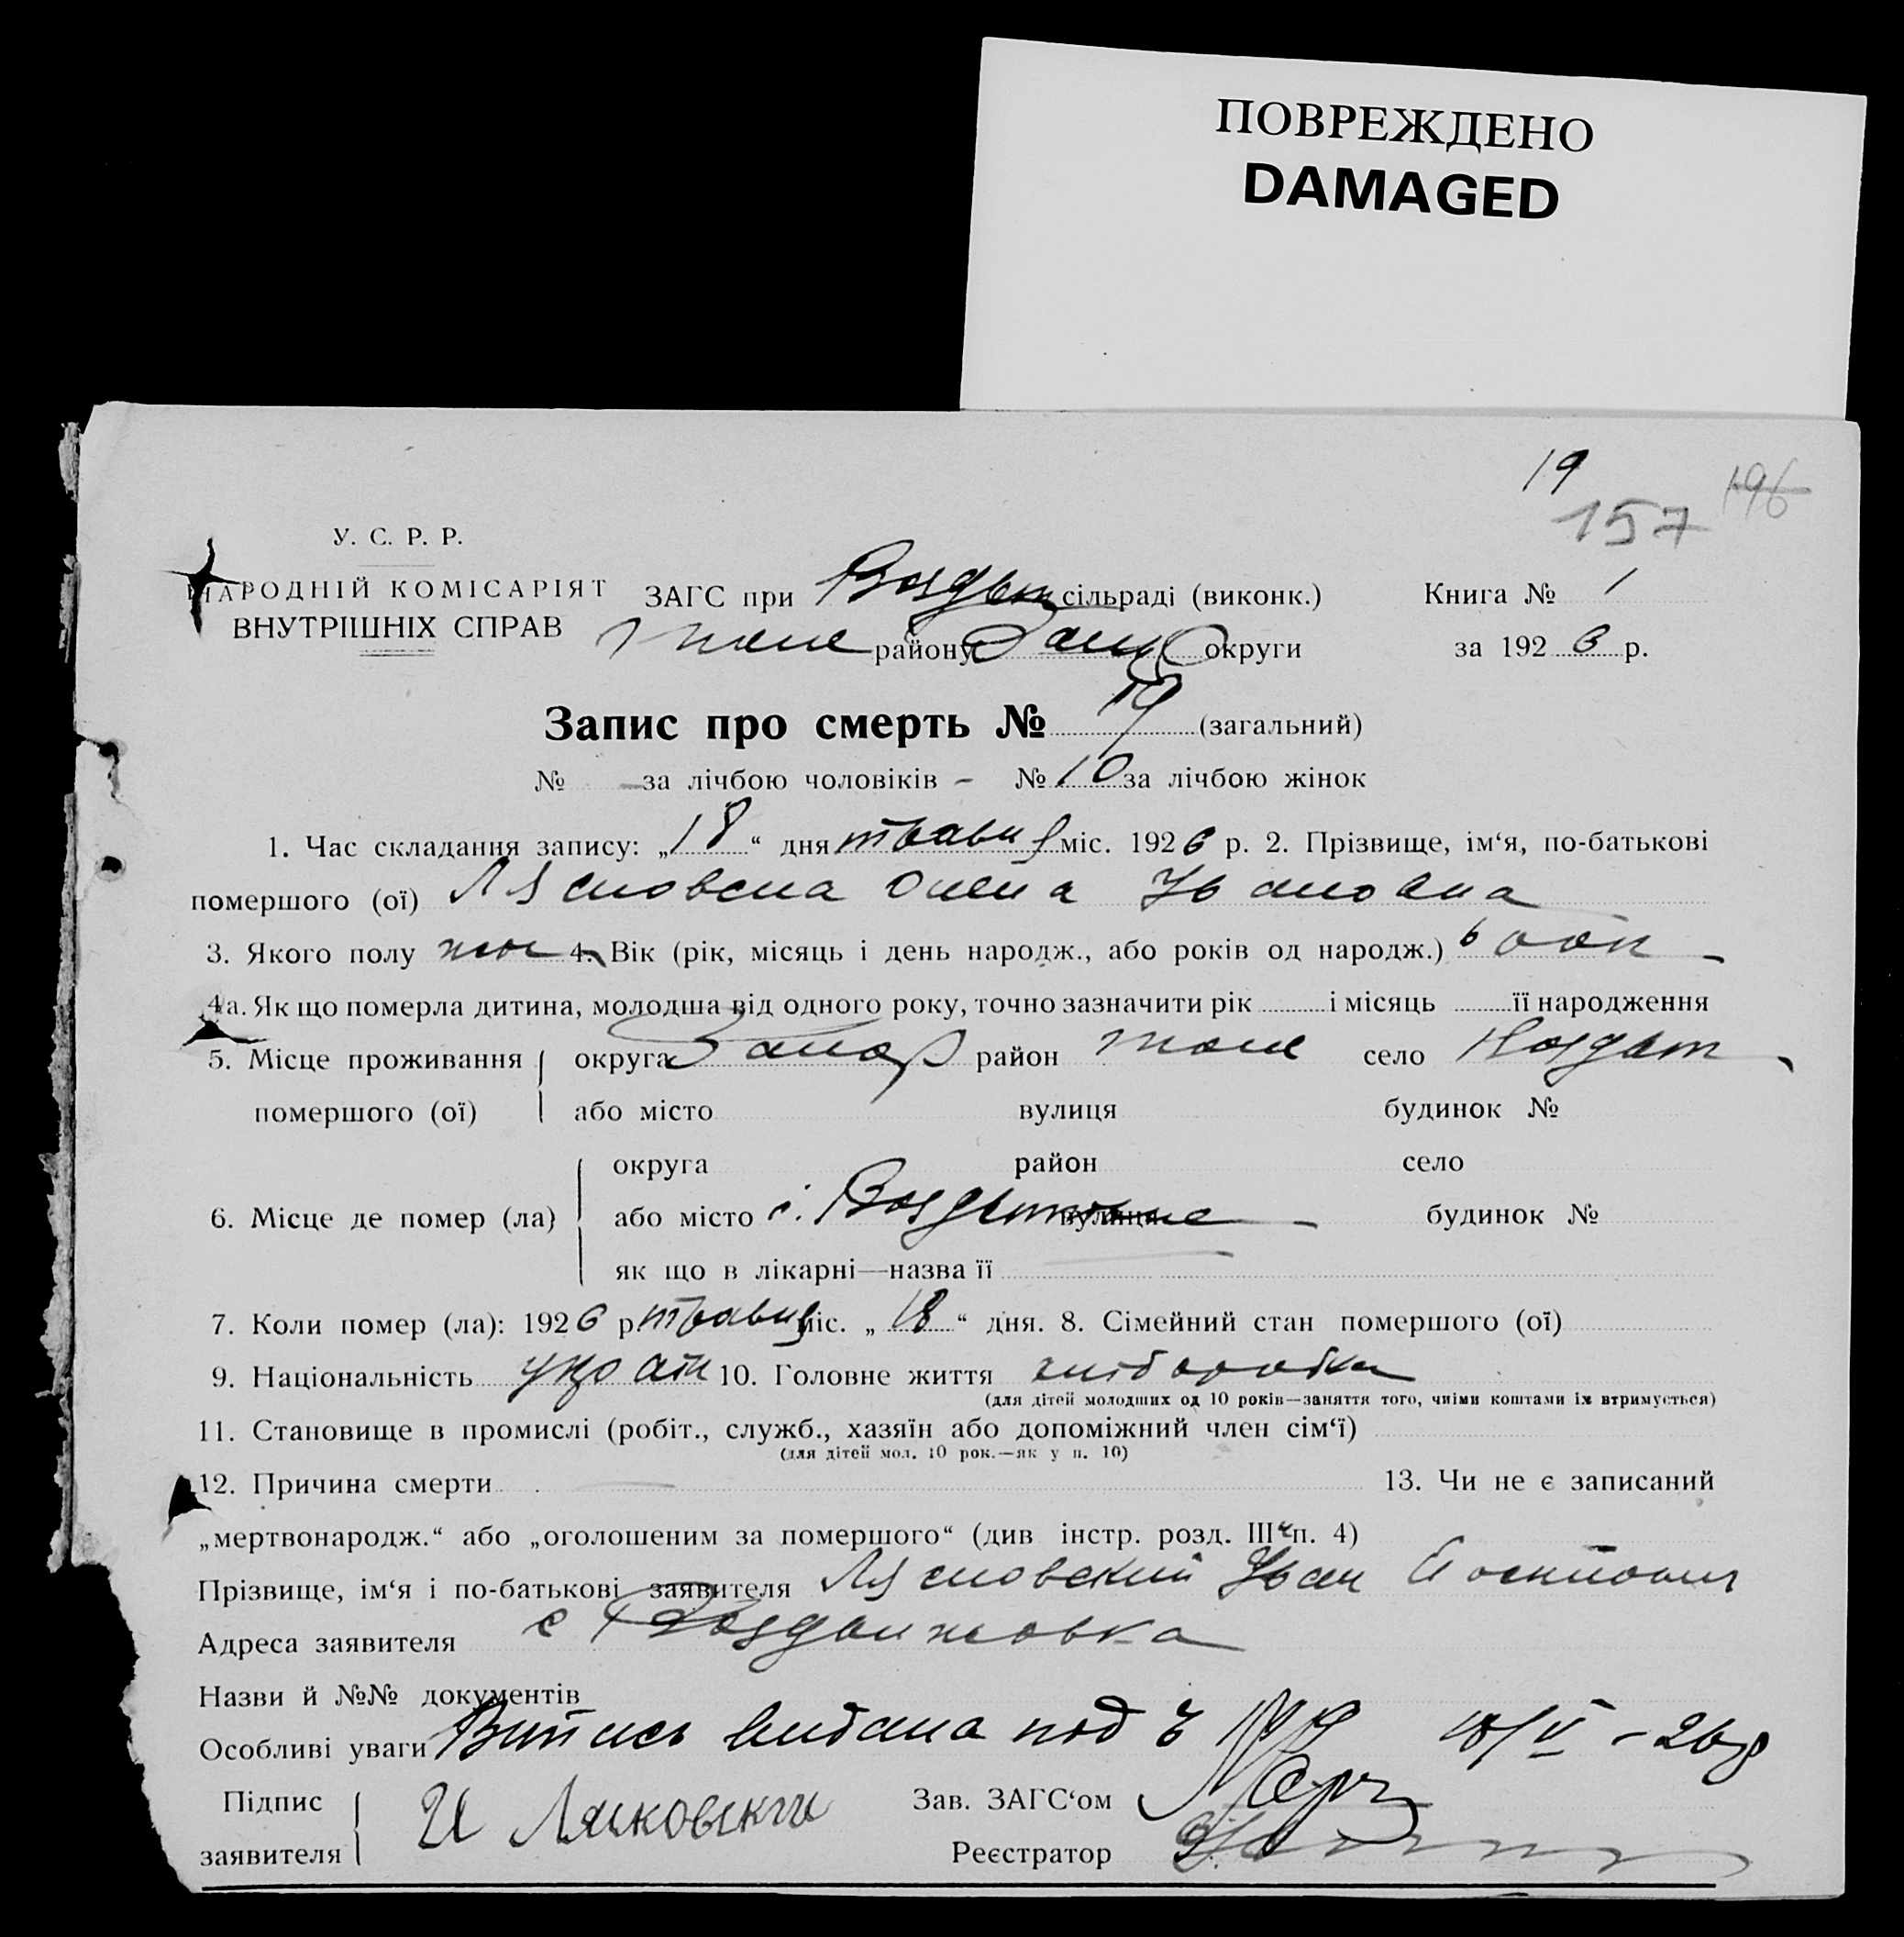 ПОВРЕЖДЕНО
DAMAGED
19
157 196
У. С. Р. Р.
НАРОДНІЙ КОМІСАРІЯТ
ВНУТРІШНІХ СПРАВ
ЗАГС при Воздвиж сільраді (виконк.) Книга № 1
району Запор округи за 1926 р.
Запис про смерть № 19 (загальний)
№ — за лічбою чоловіків — № 10 за лічбою жінок
1. Час складання запису: „18“ дня травня міс. 1926 р. 2. Прізвище, ім‘я, по-батькові
помершого (ої) Лясковска Олена Ивановна
3. Якого полу жін 4. Вік (рік, місяць і день народж., або років од народж.) 6
4а. Як що померла дитина, молодша від одного року, точно зазначити рік і місяць її народження
5. Місце проживання помершого (ої) округа Запор район село Воздвиж
або місто вулиця будинок №
6. Місце де помер (ла) округа район село
або місто с. Воздвиж вулиця будинок №
як що в лікарні—назва її
7. Коли помер (ла): 1926 р. травня міс. „18“ дня. 8. Сімейний стан помершого (ої)
9. Національність україн 10. Головне життя хліборобка
(для дітей молодших од 10 років—заняття того, чиїми коштами їх втримується)
11. Становище в промислі (робіт., служб., хазяїн або допоміжний член сім‘ї)
(для дітей мол. 10 рок.—як у п. 10)
12. Причина смерти — 13. Чи не є записаний
„мертвонародж.“ або „оголошеним за помершого“ (див інстр. розд. III п. 4)
Прізвище, ім‘я і по-батькові заявителя Лясковский Иван Осипович
Адреса заявителя с Воздвижовка
Назви й №№ документів
Особливі уваги Випись видана под № 19 18/V – 26 р
Підпис заявителя И Лясковский Зав. ЗАГС‘ом
Реєстратор